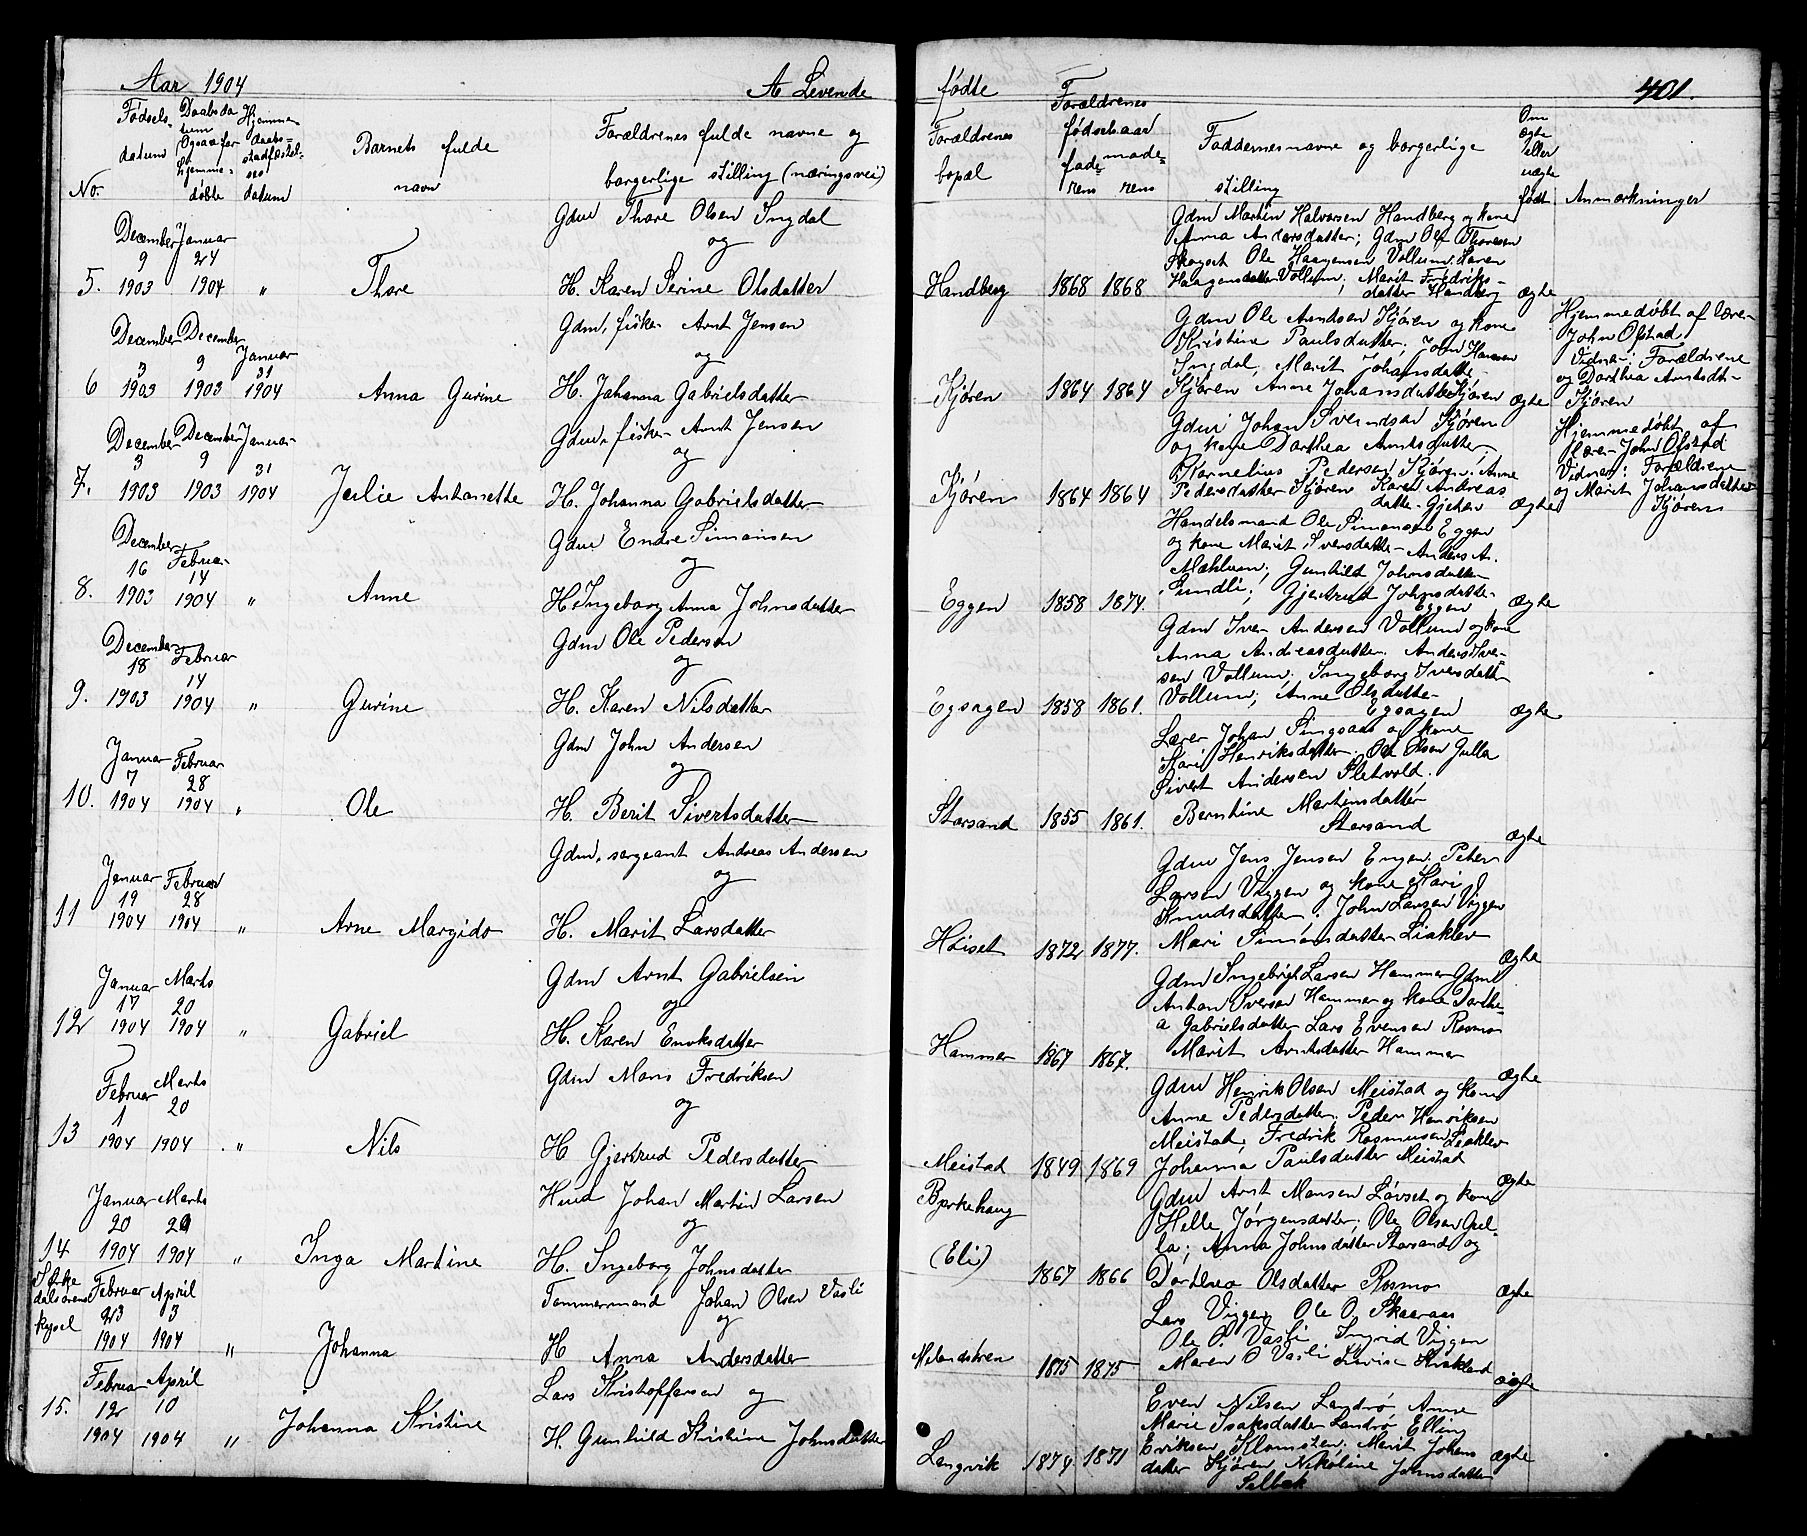 Aar 1904 A Levende fødte 401.
No.
Fødsels-
datum
Daabsda
tum
Ogsaa for
hjemme-
døbte
Hjemme-
daabs-
stadfæstel-
ses
datum
Barnets fulde
navn
Forældrenes fulde navne og
borgerlige stilling (næringsvei)
Forældrenes
bopæl
Forældrenes
fødselsaar
fade-
rens
mode-
rens
Faddernes navne og borgerlige
stilling
Om
ægte
eller
uægte
født
Anmærkninger
5.
December
9
1903
Januar
24
1904
"
Thore
Gdm Thore Olsen Ingdal
og
H. Karen Serine Olsdatter
Handberg
1868 1868
Gdm Martin Halvorsen Handberg og kone
Anna Andersdatter; Gdm Ole Thoresen
Skogset Ole Haagensen Vollum. Karen
Haagensdatter Vollum, Marit Fredriks-
datter Handberg
ægte
6
December
3
1903
December
9
1903
Januar
31
1904
Anna Gurine
Gdm, fisker Arnt Jensen
og
H. Johanna Gabrielsdatter
Kjøren
1864 1864
Gdm Ole Arndsen Kjøren og kone
Kristine Paulsdatter. John Hansen
Ingdal, Marit Johansdatter
Kjøren Anne Johansdatter Kjøren
ægte
Hjemmedøbt af lærer
John Opstad,
Vidner: Forældrene
og Dorthea Arntsdt-
Kjøren
7.
December
3
1903
December
9
1903
Januar
31
1904
Julie Antonette
Gdm, fisker Arnt Jensen
og
H. Johanna Gabrielsdatter
Kjøren
1864 1864
Gdm Johan Svendsen Kjøren
og kone Dorthea Arntsdatter.
Kornelius Pedersen Kjøren. Anne
Pedersdatter Kjøren Karen Andreas
datter
ægte
Hjemmedøbt af
lærer John Opstad
Vidner: Forældrene
og Marit Johansdatter
Kjøren
8.
December
16
1903
Februar
14
1904
"
Anne
Gdm Endre Simonsen
og
H. Ingeborg Anna Johnsdatter
Eggen
1858 1874.
Handelsmand Ole Simonsen Eggen
og kone Marit Iversdatter Anders A.
Mæhlum; Gunhild Johnsdatter
Sundli; Gjertrud Johnsdatter
Eggen
ægte
9.
December
18
1903
Februar
14
1904
"
Gurine
Gdm Ole Pedersen
og
H. Karen Nilsdatter
Egsagen
1858 1861.
Gdm Iver Andersen Vollum og kone
Anna Andreasdatter. Anders Iver-
sen Vollum. Ingeborg Iversdatter
Vollum, Anne Olsdatter
Egsagen
ægte
10.
Januar
7
1904
Februar
28
1904
"
Ole
Gdm John Andersen
og
H. Berit Sivertsdatter
Storsand
1855 1861.
Lærer Johan Singsaas og kone
Kari Henriksdatter. Ole Olsen Gulla
Sivert Andersen Sletvold.
Berntine Martinsdatter
Storsand
ægte
11
Januar
19
1904
Februar
28
1904
"
Arne Margido
Gdm, sergeant Andreas Andersen
og
H. Marit Larsdatter
Høiset
1872 1877.
Gdm Jens Jensen Engen. Peter
Larsen Viggen og kone Mari
Knudsdatter. John Larsen Viggen
Mari Simonsdatter Liaklev
ægte
12
Januar
17
1904
Marts
20
1904
"
Gabriel
Gdm Arnt Gabrielsen
og
H. Karen Enoksdatter
Hammer
1867 1867.
Gdm Ingebrigt Larsen Hammer Gdm
Anton Iversen Hammer og kone Dorthe-
a Gabrielsdatter Lars Evensen Rosmo
Marit Arntsdatter Hammer
ægte
13
Februar
1
1904
Marts
20
1904
"
Nils
Gdm Mons Fredriksen
og
H Gjertrud Pedersdatter
Meistad
1849 1869
Gdm Henrik Olsen Meistad og kone
Anne Pedersdatter. Peder Henriksen
Meistad, Fredrik Rasmusen Liaklev
Johanna Paulsdatter Meistad
ægte
14
Januar
20
1904
Marts
20
1904
"
Inga Martine
Hmd Johan Martin Larsen
og
H. Ingeborg Johnsdatter
Bjerkehaug
(Eli)
1867 1866
Gdm Arnt Monsen Løvset og kone
Helle Jørgensdatter; Ole Olsen Gul-
la; Anna Johnsdatter Storsand og
Dorthea Olsdatter Rosmo
ægte
Børke
dalsørens
kapel
Februar
23
1904
April
3
1904
"
Johanna
Tømmermand Johan Olsen Vasli
og
H Anna Andersdatter
1875 1875
Lars Viggen Ole O. Skaaraas
Ole O. Vasli Ingrid Viggen
Maren O Vasli
ægte
15.
Februar
12
1904
April
10
1904
"
Johanna Kristine
Lars Kristoffersen og
H. Gunhild Kristine Johnsdatter
Langvik
1874. 1871
Even Nilsen Landrø Anne
Marie Isaksdatter Landrø Elling
Eriksen Klomsten. Marit Johans
datter Kjøren Nikoline Johnsdatter
Selbæk
ægte